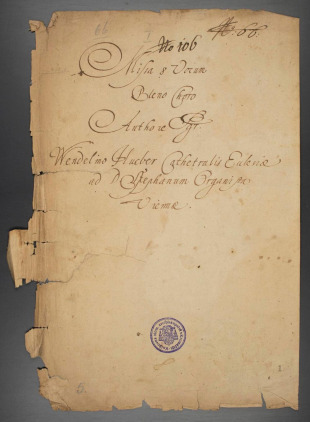 66
No 106
No. 66.
Missa 8 Vocum
Pleno Choro
Authore
Wendelino Hueber Cathedralis Ecclesiæ
ad D Stephanum Organista
Viennæ.